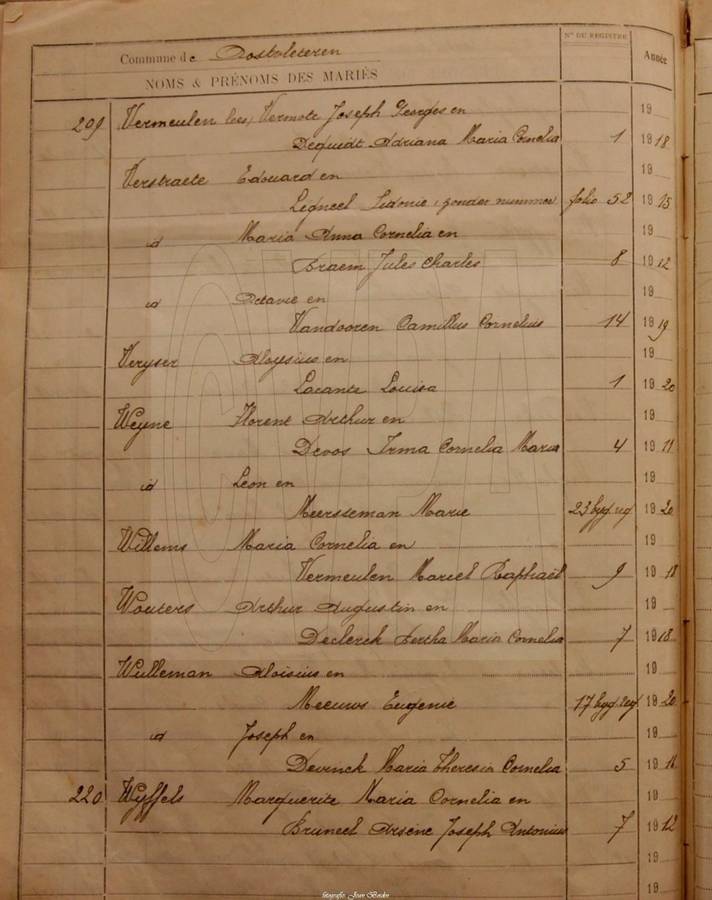 Commune de Oostvleteren
N° DU REGISTRE
Année
NOMS & PRÉNOMS DES MARIÉS
19
209 Vermeulen lees, Vermote Joseph Georges en
Dequidt Adriana Maria Cornelia 1 1918
19
Verstraete Edouard en
Legneel Sidonie, zonder nummer folio 52 1915
19
id Maria Anna Cornelia en
Braem Jules Charles 8 1912
19
id Octavie en
Vandooren Camillus Cornelius 14 1919
19
Veryser Aloysius en
Lacante Louisa 1 1920
19
Weyne Florent Arthur en
Devos Irma Cornelia Maria 4 1911
19
id Leon en
Meersseman Marie 23 byg. reg 1920
19
Willems Maria Cornelia en
Vermeulen Marcel Raphaël 9 1918
19
Wouters Arthur Augustin en
Declerck Bertha Maria Cornelia 7 1918
19
Wulleman Aloïsius en
Meeuws Eugenie 17 byg. reg 1920
19
id Joseph en
Devinck Maria Theresia Cornelia 5 19
19
220 Wyffels Marguerite Maria Cornelia en
Bruneel Arsène Joseph Antonius 7 1912
19
19
fotografie: Jean Bedin
CVPA